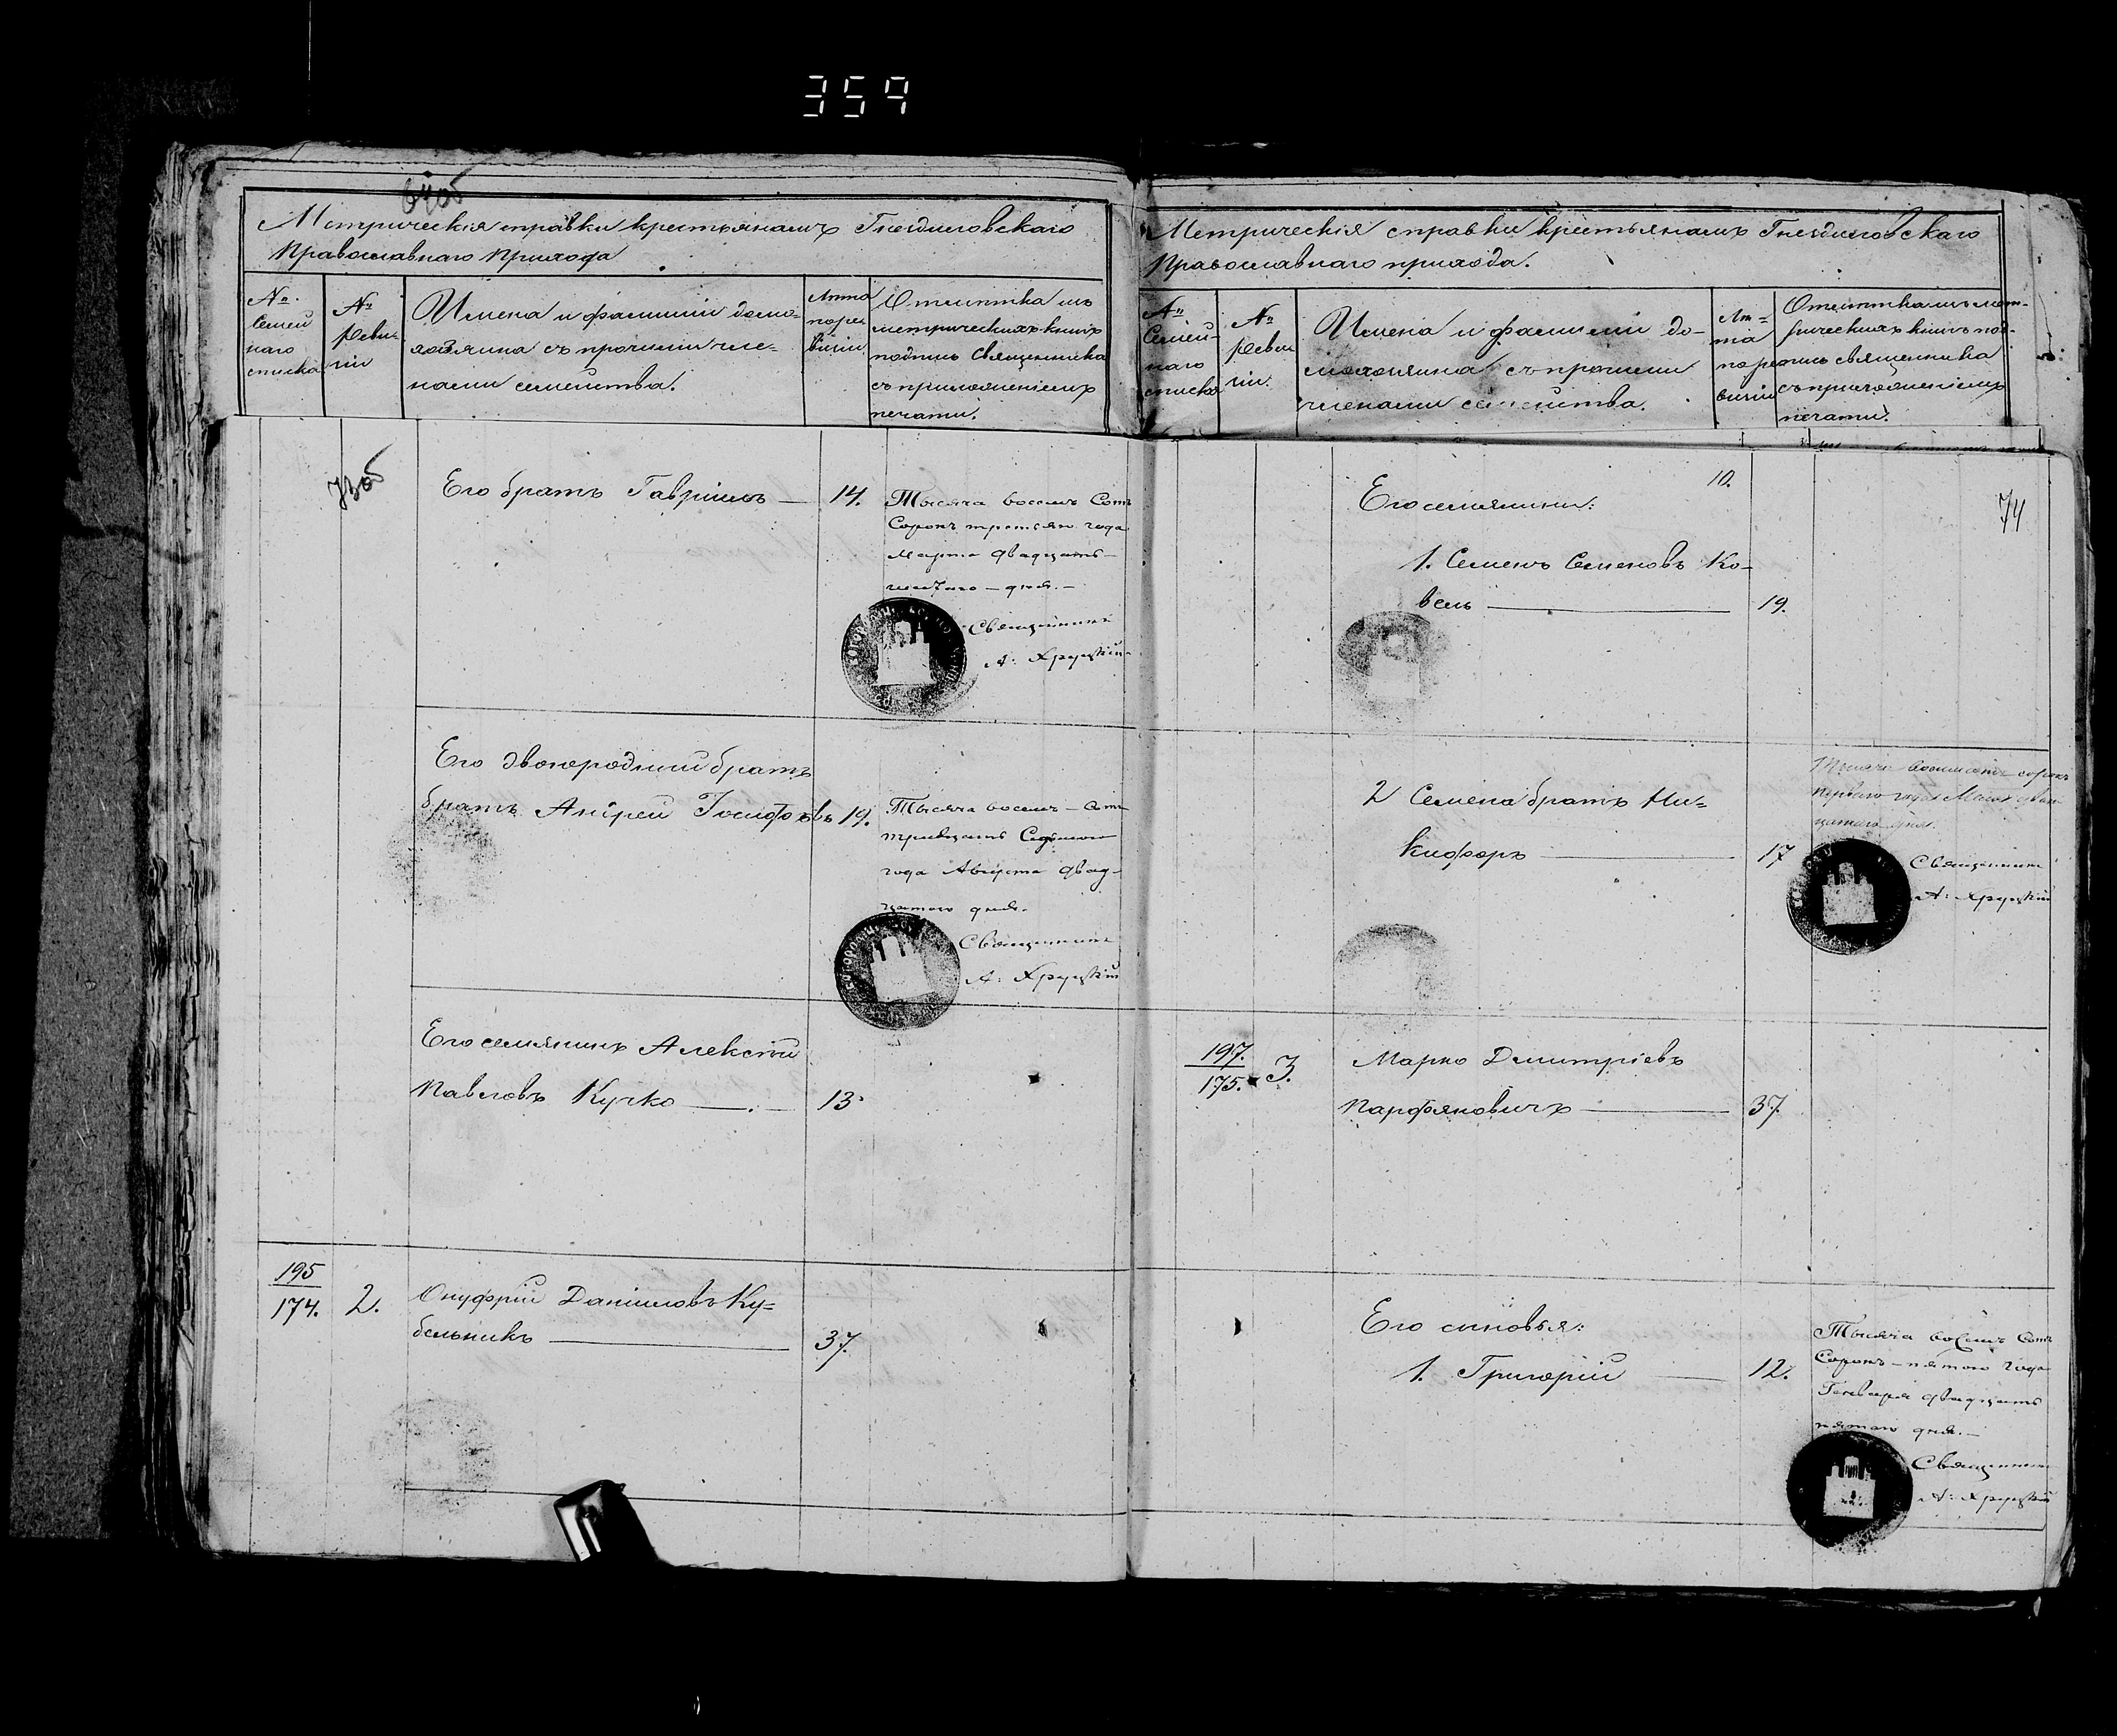 359
64об
Метрическія справки крестьянамъ Гнездиловскаго
Православнаго Прихода
№
Семей
наго
списка
№
Реви-
зіи
Имена и фамиліи домо-
хозяина съ прочими чле-
нами семейства.
Лета
по ре
визіи
Отметка въ
метрическихъ книгъ
подпись Священника
съ приложеніемъ
печати.
73об
Его братъ Гавріилъ — 14.
Тысяча восемь Сотъ
Сорокъ третьяго года
Марта двадцать —
дня. —
Священникъ
А: Хруцкій
Его двоюродний братъ
братъ Андрей Іосифовъ 19.
Тысяча восемь — Сотъ
тридцать Седьмого
года Августа двад-
цатого дня.
Священникъ
А: Хруцкій
Его семянинъ Алексѣй
Павловъ Кучко — 13
195
174. 2.
Онуфрій Даніиловъ Ку=
бельникъ — 37.
Метрическія справки крестьянамъ Гнездиловскаго
Православнаго прихода.
№
Семей-
наго
списка
№
Реви
зіи.
Имена и фамиліи до-
мохозяина съ прочими
членами семейства.
Лѣ=
та
по ре
визіи
Отметка въ мет-
рическихъ книгъ под-
пись священника
съ приложеніемъ
печати.
74
10.
Его семянини:
1. Семенъ Семеновъ Ко-
вель — 19.
2 Семена братъ Ни=
кифоръ — 17
Тысяча восемьсотъ сорокъ
перваго года Мая двад
цатаго дня.
Священникъ
А: Хруцкій
197.
175. 3.
Марко Дмитріевъ
Парфяновичъ — 37.
Его сыновья:
1. Григорій — 12.
Тысяча восемь Сотъ
Сорокъ — пятого года
Генваря двадцать
пятого дня. —
Священникъ
А: Хруцкій